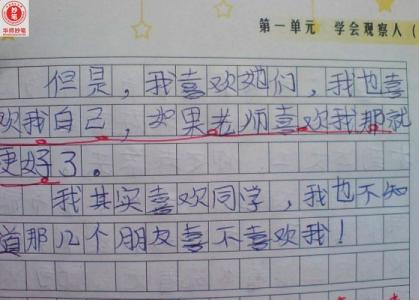 华师妙笔
第一单元 学会观察人（
但是，我喜欢她们，我也喜
欢我自己，如果老师喜欢我那就
更好了。
我其实喜欢同学，我也不知
道那几个朋友喜不喜欢我！